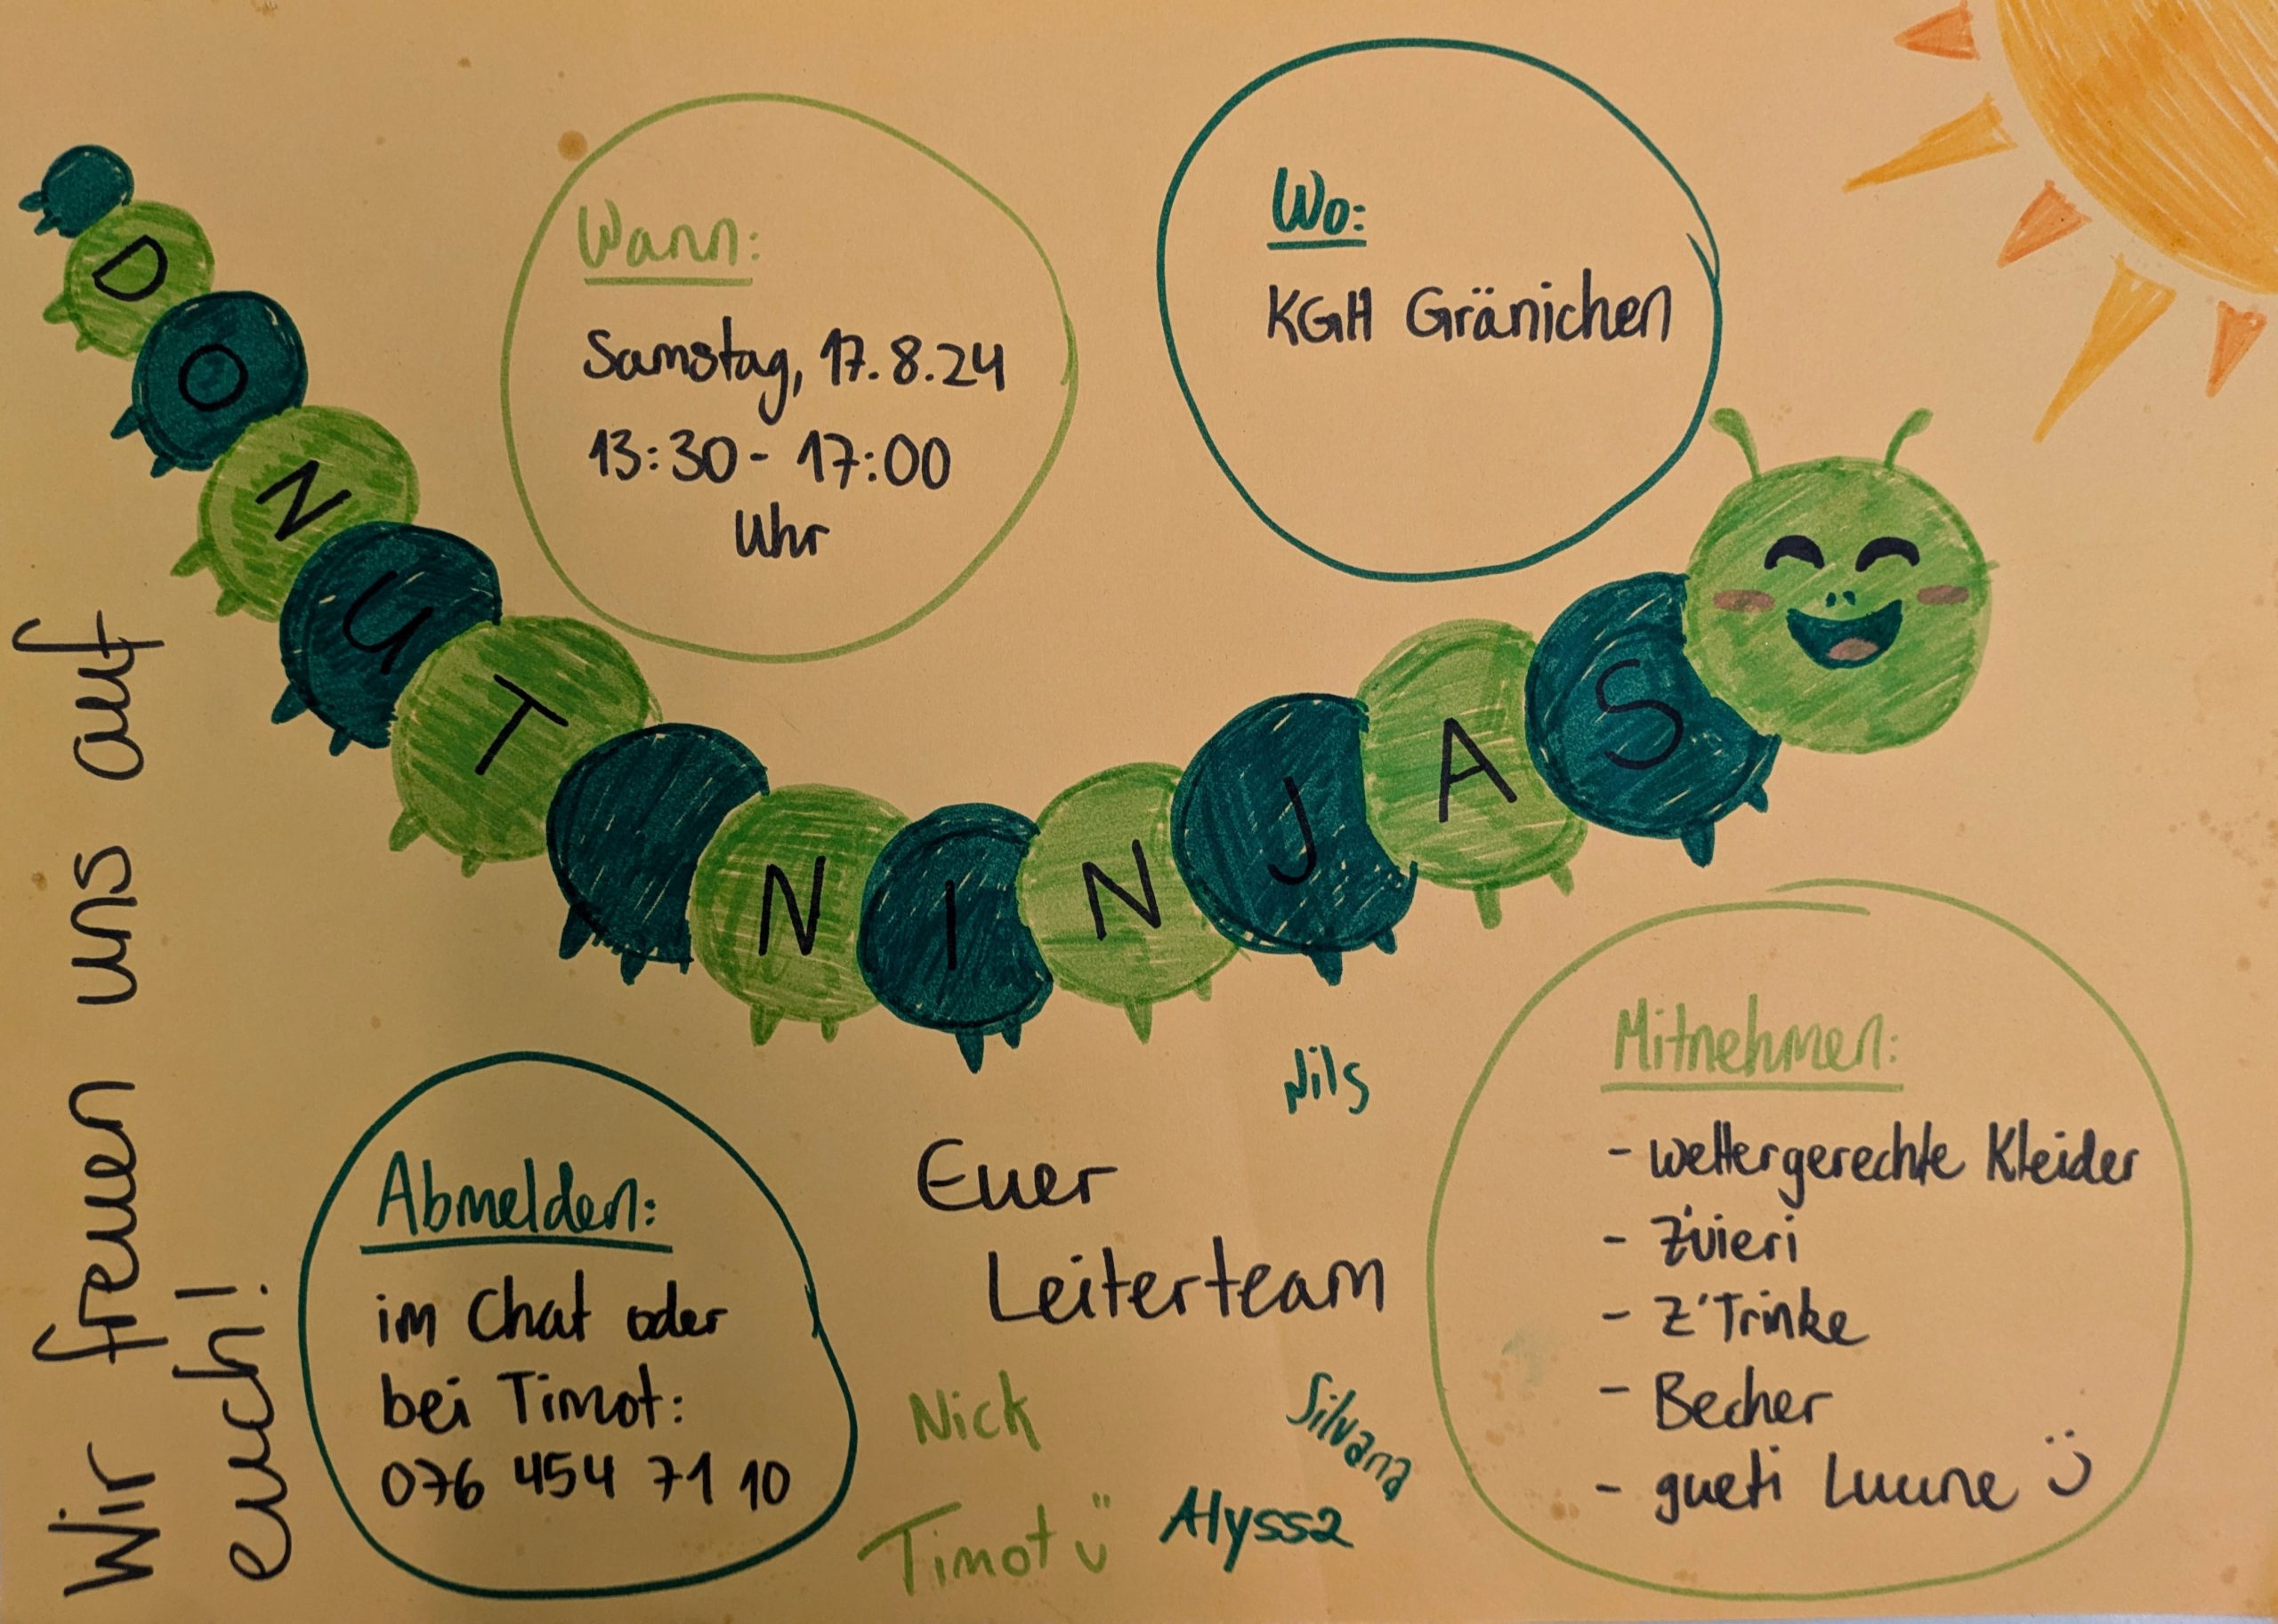 Wann:
Samstag, 17.8.24
13:30 - 17:00
Uhr
Wo:
KGH Gränichen
DONUT NINJAS
Wir freuen uns auf
euch!
Abmelden:
im Chat oder
bei Timot:
076 454 71 10
Euer
Leiterteam
Nils
Nick
Silvana
Timot ü
Alyssa
Mitnehmen:
- wettergerechte Kleider
- Z'vieri
- Z'Trinke
- Becher
- gueti Luune Ü